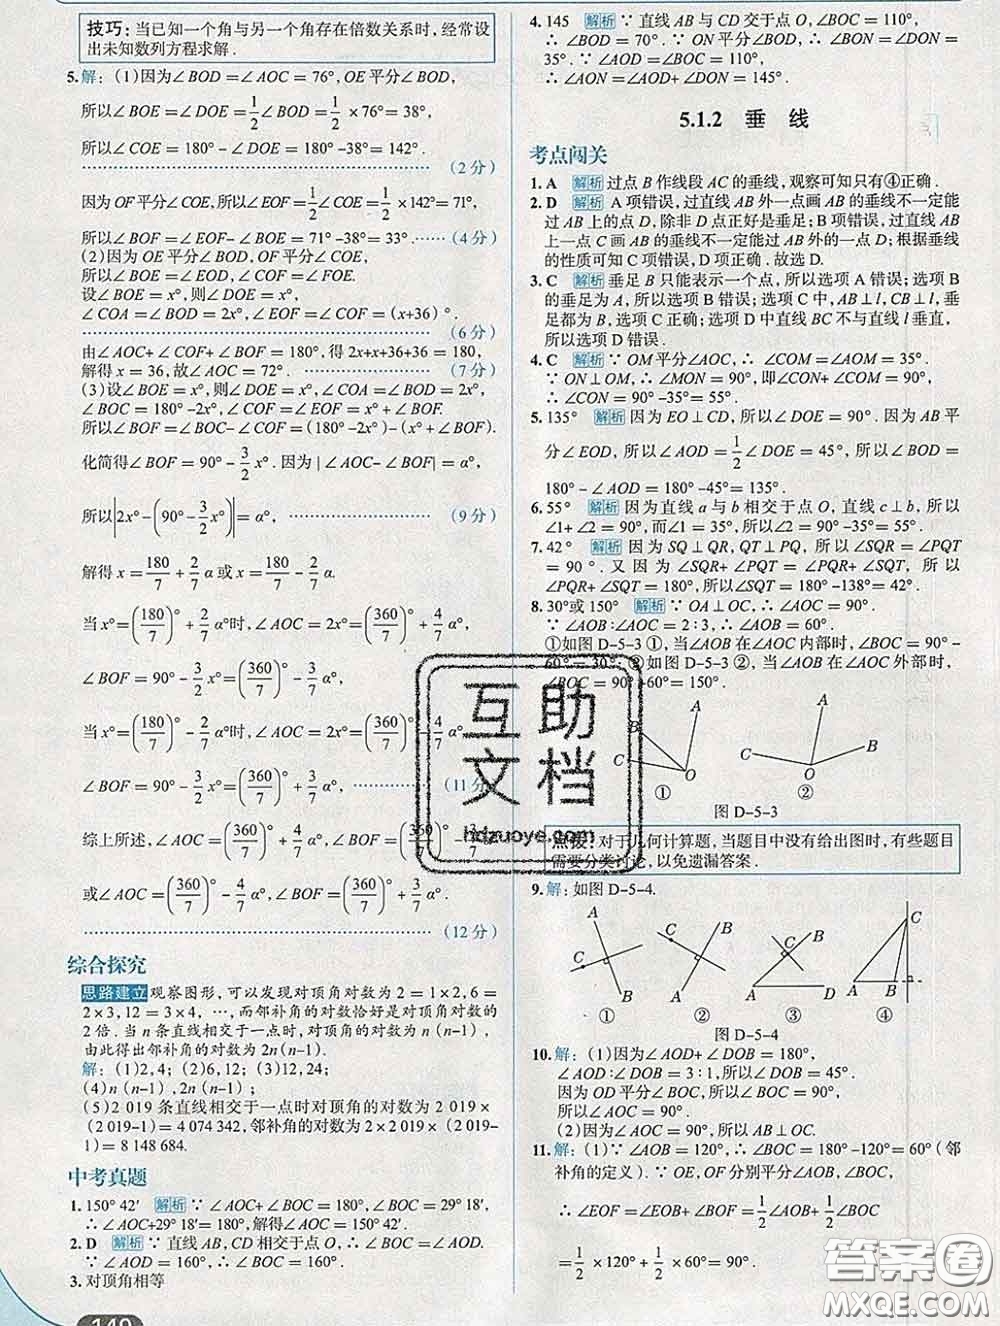 技巧:当已知一个角与另一个角存在倍数关系时,经常设
出未知数列方程求解.
5.解:(1)因为∠BOD=∠AOC=76°,OE平分∠BOD,
所以∠BOE=∠DOE=1/2∠BOD=1/2×76°=38°,
所以∠COE=180°-∠DOE=180°-38°=142°.
(2分)
因为OF平分∠COE,所以∠EOF=1/2∠COE=1/2×142°=71°,
所以∠BOF=∠EOF-∠BOE=71°-38°=33°.……(4分)
(2)因为OE平分∠BOD,OF平分∠COE,
所以∠BOE=∠EOD,∠COF=∠FOE.
设∠BOE=x°,则∠DOE=x°,
∠COA=∠BOD=2x°,∠EOF=∠COF=(x+36)°.
(6分)
由∠AOC+∠COF+∠BOF=180°,得2x+x+36+36=180,
解得x=36,故∠AOC=72°.……(7分)
(3)设∠BOE=x°,则∠DOE=x°,∠COA=∠BOD=2x°,
∠BOC=180°-2x°,∠COF=∠EOF=x°+∠BOF.
所以∠BOF=∠BOC-∠COF=(180°-2x°)-(x°+∠BOF).
化简得∠BOF=90°-3/2x°.因为|∠AOC-∠BOF|=α°,
所以|2x°-(90°-3/2x°)|=α°,……(9分)
解得x=180/7+2/7α或x=180/7-2/7α.
当x°=(180/7)°+2/7α°时,∠AOC=2x°=(360/7)°+4/7α°,
∠BOF=90°-3/2x°=(360/7)°-3/7α°;
当x°=(180/7)°-2/7α°时,∠AOC=2x°=(360/7)°-4/7α°,
∠BOF=90°-3/2x°=(360/7)°+3/7α°,……(11分)
综上所述,∠AOC=(360/7)°+4/7α°,∠BOF=(360/7)°-3/7α°
或∠AOC=(360/7)°-4/7α°,∠BOF=(360/7)°+3/7α°.
(12分)
综合探究
思路建立 观察图形,可以发现对顶角对数为2=1×2,6=
2×3,12=3×4,…,而邻补角的对数恰好是对顶角对数的
2倍.当n条直线相交于一点时,对顶角的对数为n(n-1),
由此得出邻补角的对数为2n(n-1).
解:(1)2,4;(2)6,12;(3)12,24;
(4)n(n-1),2n(n-1);
(5)2 019条直线相交于一点时对顶角的对数为2 019×
(2 019-1)=4 074 342,邻补角的对数为2×2 019×(2 019-
1)=8 148 684.
中考真题
1.150°42′ 解析 ∵∠AOC+∠BOC=180°,∠BOC=29°18′,
∴∠AOC+29°18′=180°,解得∠AOC=150°42′.
2.D 解析 ∵直线AB,CD相交于点O,∴∠AOD=∠BOC.
∵∠AOD=160°,∴∠BOC=160°.
3.对顶角相等
149
4.145 解析 ∵直线AB与CD交于点O,∠BOC=110°,
∴∠BOD=70°.∵ON平分∠BOD,∴∠BON=∠DON=
35°.∵∠AOD=∠BOC=110°,
∴∠AON=∠AOD+∠DON=145°.
5.1.2 垂线
考点闯关
1.A 解析 过点B作线段AC的垂线,观察可知只有④正确.
2.D 解析 A项错误,过直线AB外一点画AB的垂线不一定能
过AB上的点D,除非D点正好是垂足;B项错误,过直线AB
上一点C画AB的垂线不一定能过AB外的一点D;根据垂线
的性质可知C项错误,D项正确.故选D.
3.C 解析 垂足B只能表示一个点,所以选项A错误;选项B
的垂足为A,所以选项B错误;选项C中,AB⊥l,CB⊥l,垂
足都为B,选项C正确;选项D中直线BC不与直线l垂直,
所以选项D错误.
4.C 解析 ∵OM平分∠AOC,∴∠COM=∠AOM=35°.
∵ON⊥OM,∴∠MON=90°,即∠CON+∠COM=90°,
∴∠CON=90°-35°=55°.
5.135° 解析 因为EO⊥CD,所以∠DOE=90°.因为AB平
分∠EOD,所以∠AOD=1/2∠DOE=45°,所以∠BOD=
180°-∠AOD=180°-45°=135°.
6.55° 解析 因为直线a与b相交于点O,直线c⊥b,所以
∠1+∠2=90°,而∠1=35°,所以∠2=90°-35°=55°.
7.42° 解析 因为SQ⊥QR,QT⊥PQ,所以∠SQR=∠PQT
=90°.又因为∠SQR+∠PQT=∠PQR+∠SQT,所以
∠PQR+∠SQT=180°,所以∠SQT=180°-138°=42°.
8.30°或150° 解析 ∵OA⊥OC,∴∠AOC=90°.
∵∠AOB:∠AOC=2:3,∴∠AOB=60°.
①如图D-5-3①,当∠AOB在∠AOC内部时,∠BOC=90°-
60°=30°;②如图D-5-3②,当∠AOB在∠AOC外部时,
∠BOC=90°+60°=150°.
A
B
C
O
①
A
C
B
O
②
图D-5-3
点拨:对于几何计算题,当题目中没有给出图时,有些题目
需要分类讨论,以免遗漏答案.
9.解:如图D-5-4.
A
C
B
①
C
B
A
②
C
B
A
D
③
C
A
B
④
图D-5-4
10.解:(1)因为∠AOD+∠DOB=180°,
∠AOD:∠DOB=3:1,所以∠DOB=45°.
因为OD平分∠BOC,所以∠BOC=90°,
所以∠AOC=90°.
(2)因为∠AOC=90°,所以AB⊥OC.
11.解:(1)∵∠AOB=120°,∴∠BOC=180°-120°=60°(邻
补角的定义).∵OE,OF分别平分∠AOB,∠BOC,
∴∠EOF=∠EOB+∠BOF=1/2∠AOB+1/2∠BOC
=1/2×120°+1/2×60°
互助
文档
hdzuoye.com
答案圈
MXQE.COM